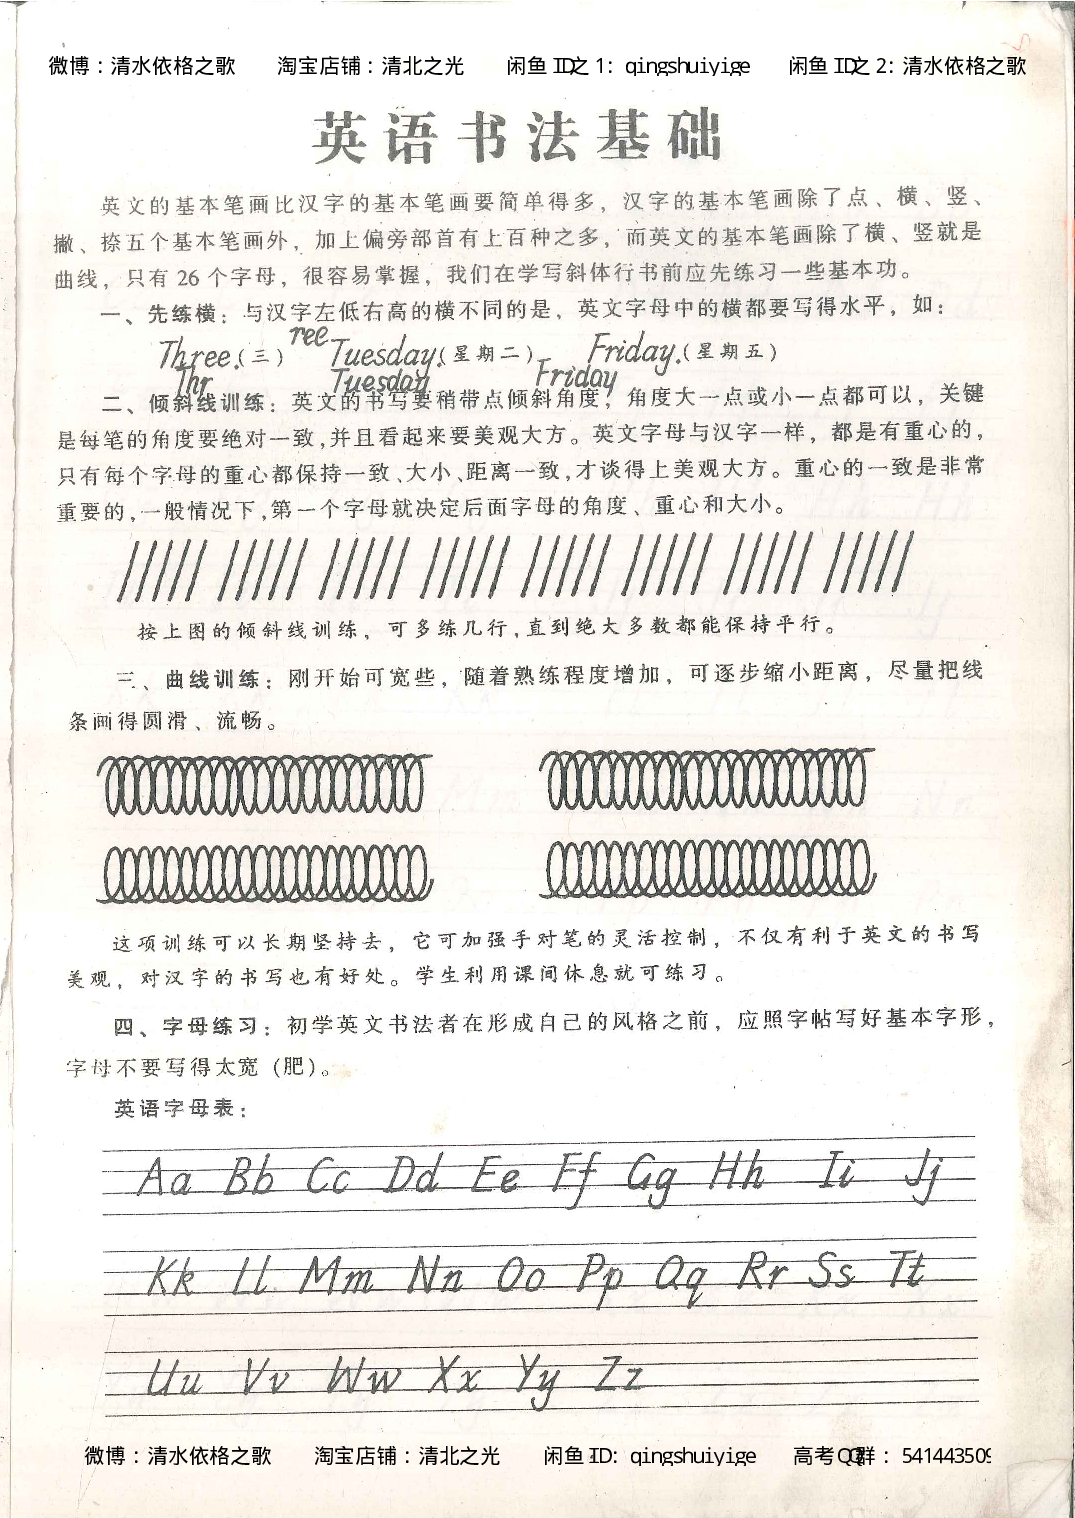 微博：清水依格之歌 淘宝店铺：清北之光 闲鱼ID之1：qingshuiyige 闲鱼ID之2：清水依格之歌
英语书法基础
英文的基本笔画比汉字的基本笔画要简单得多，汉字的基本笔画除了点、横、竖、
撇、捺五个基本笔画外，加上偏旁部首有上百种之多，而英文的基本笔画除了横、竖就是
曲线，只有26个字母，很容易掌握，我们在学写斜体行书前应先练习一些基本功。
一、先练横：与汉字左低右高的横不同的是，英文字母中的横都要写得水平，如：
ree
Three.(三) Tuesday.(星期二) Friday.(星期五)
Thr Tuesday Friday
二、倾斜线训练：英文的书写要稍带点倾斜角度，角度大一点或小一点都可以，关键
是每笔的角度要绝对一致，并且看起来要美观大方。英文字母与汉字一样，都是有重心的，
只有每个字母的重心都保持一致、大小、距离一致，才谈得上美观大方。重心的一致是非常
重要的，一般情况下，第一个字母就决定后面字母的角度、重心和大小。
按上图的倾斜线训练，可多练几行，直到绝大多数都能保持平行。
三、曲线训练：刚开始可宽些，随着熟练程度增加，可逐步缩小距离，尽量把线
条画得圆滑、流畅。
这项训练可以长期坚持去，它可加强手对笔的灵活控制，不仅有利于英文的书写
美观，对汉字的书写也有好处。学生利用课间休息就可练习。
四、字母练习：初学英文书法者在形成自己的风格之前，应照字帖写好基本字形，
字母不要写得太宽（肥）。
英语字母表：
Aa Bb Cc Dd Ee Ff Gg Hh Ii Jj
Kk Ll Mm Nn Oo Pp Qq Rr Ss Tt
Uu Vv Ww Xx Yy Zz
微博：清水依格之歌 淘宝店铺：清北之光 闲鱼ID：qingshuiyige 高考QQ群：541443509